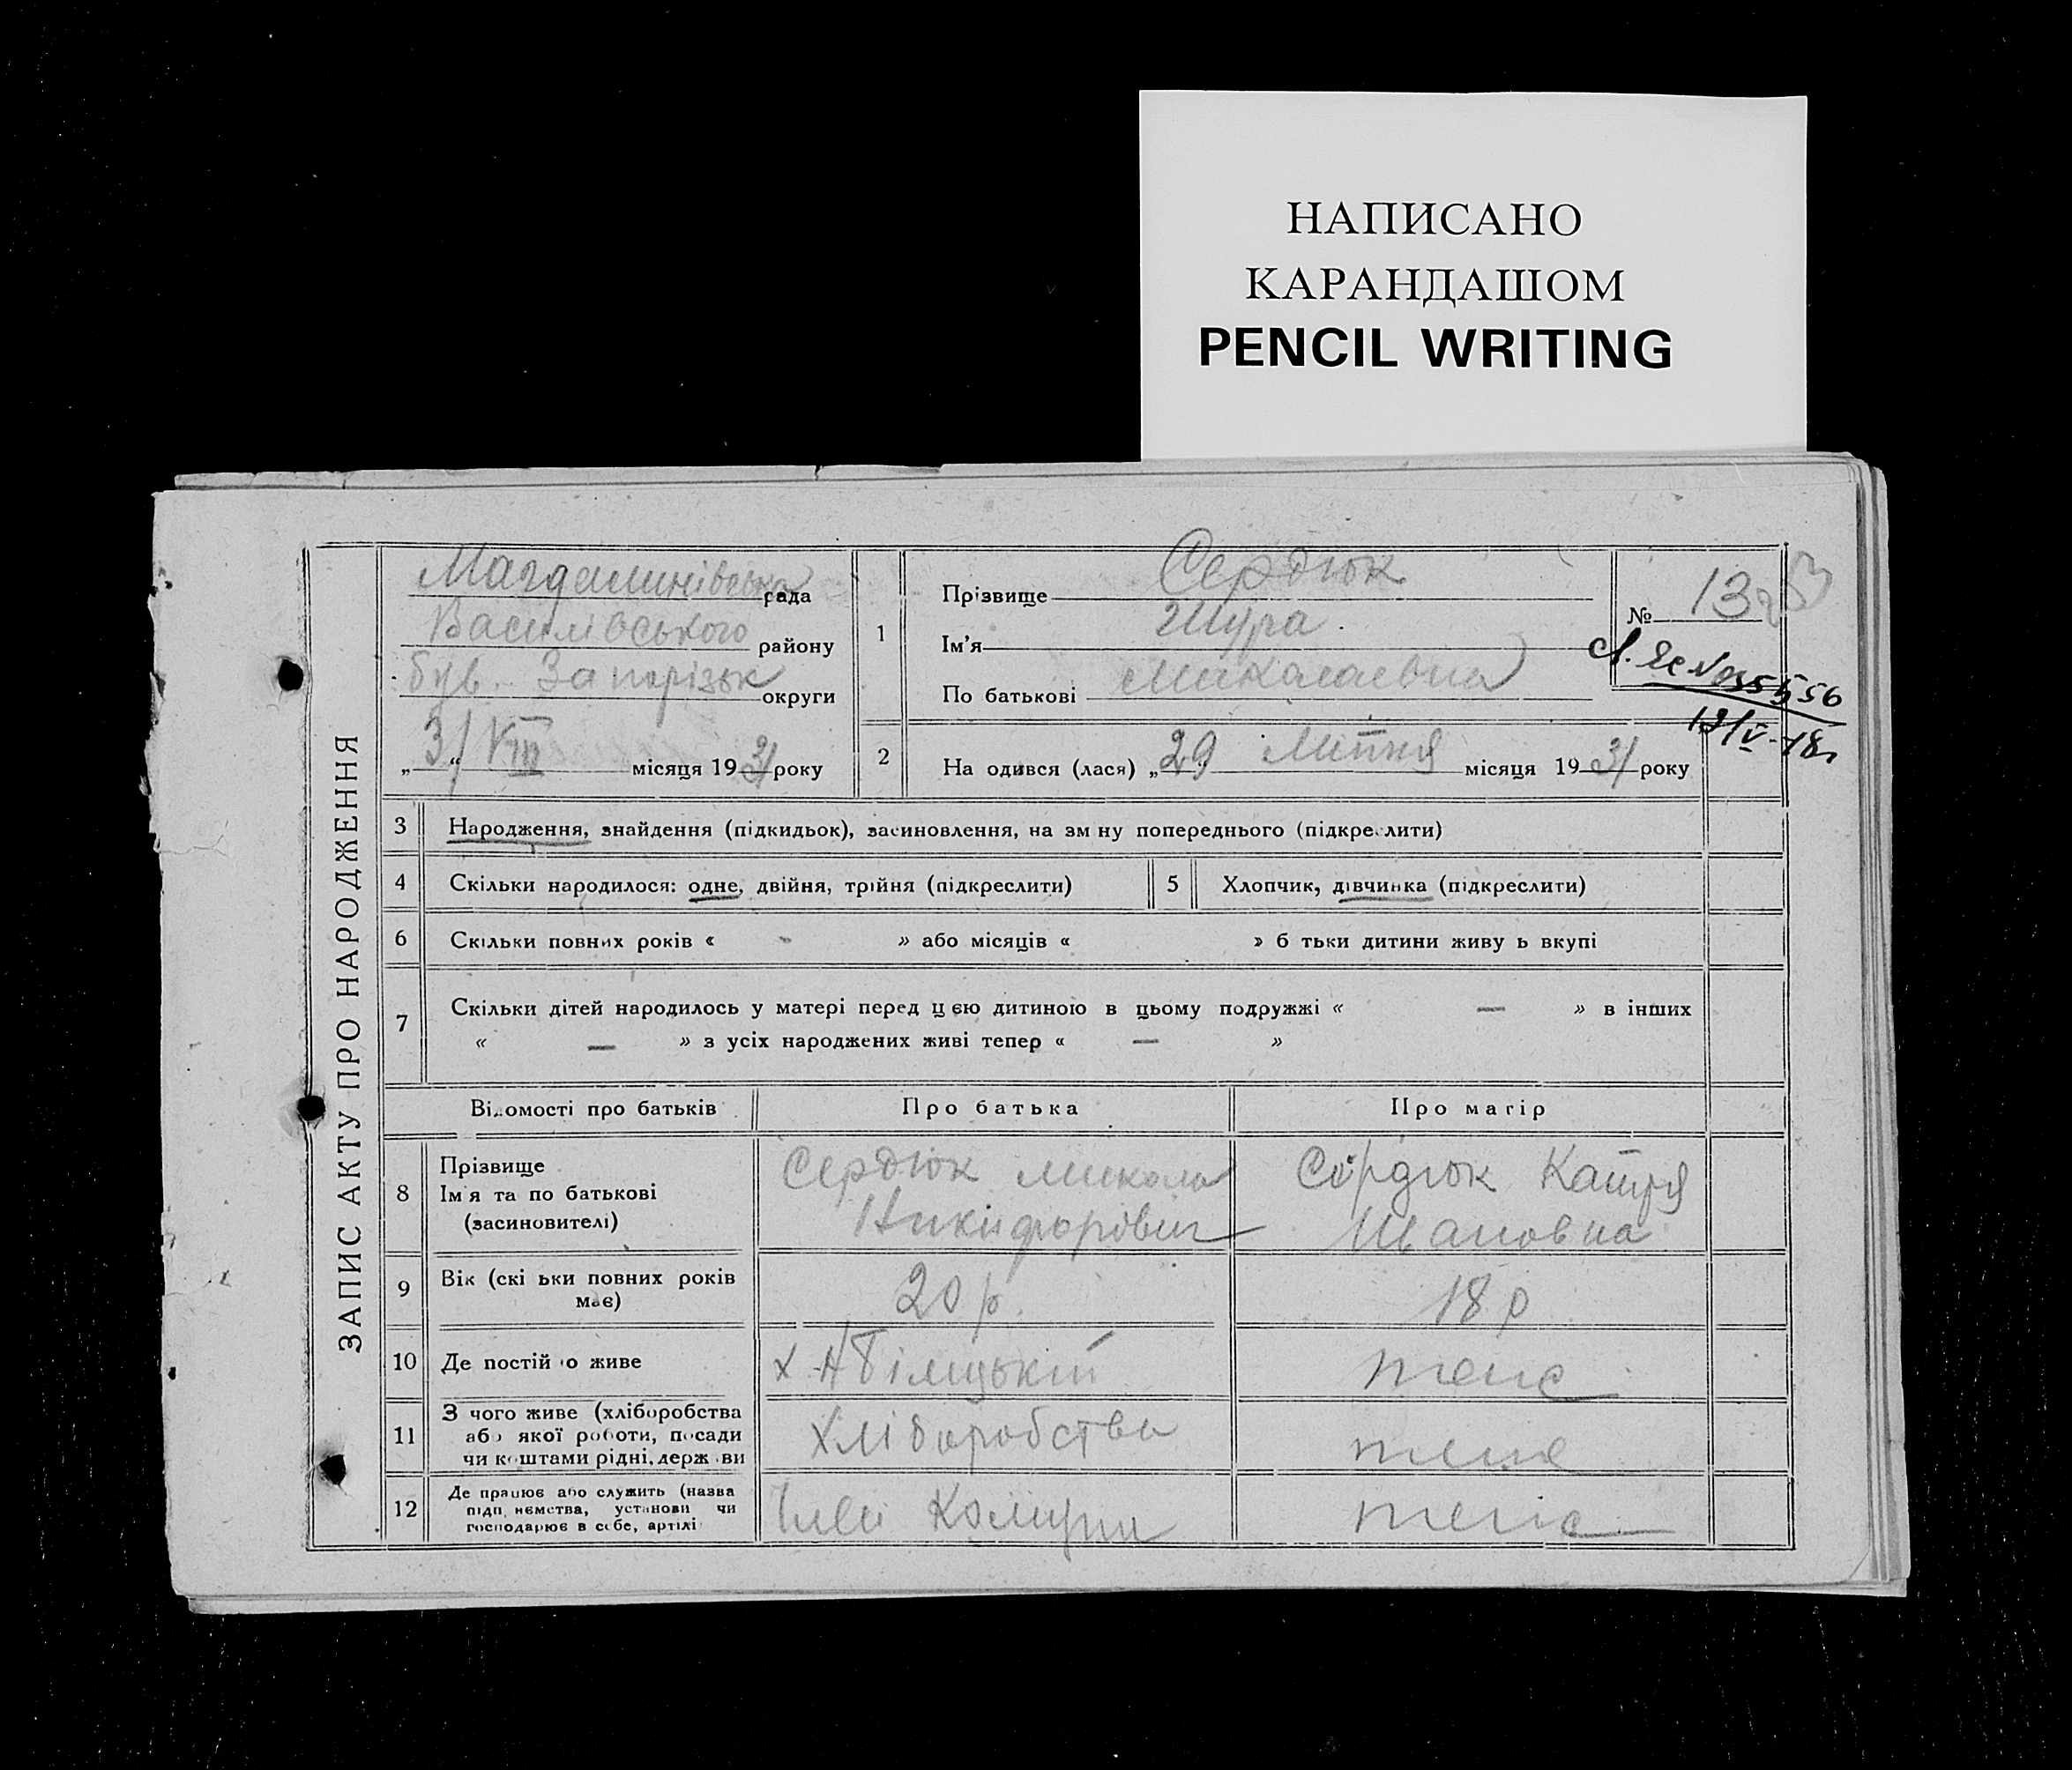 НАПИСАНО
КАРАНДАШОМ
PENCIL WRITING
ЗАПИС АКТУ ПРО НАРОДЖЕННЯ
Магдалинівська рада
Василівського району
був. Запорізьк округи
„3/“ VIII місяця 1931 року
1
Прізвище Сердюк
Ім'я Шура.
По батькові Миколаевна
№ 13
12/V-18
2
На одився (лася) „29 Липня місяця 1931 року
3 Народження, знайдення (підкидьок), засиновлення, на зм ну попереднього (підкреслити)
4 Скільки народилося: одне, двійня, трійня (підкреслити) 5 Хлопчик, дівчинка (підкреслити)
6 Скільки повних років « - » або місяців « » б тьки дитини живу ь вкупі
7 Скільки дітей народилось у матері перед цією дитиною в цьому подружжі « — » в інших
« — » з усіх народжених живі тепер « — »
Відомості про батьків Про батька Про матір
8 Прізвище
Ім'я та по батькові
(засиновителі)
Сердюк Микола
Никифорович
Сердюк Катря
Ивановна
9 Вік (скі ьки повних років
має)
20 р. 18 р
10 Де постій о живе
тоже
11 З чого живе (хліборобства
або якої роботи, посади
чи коштами рідні, держ ви
Хліборобства тоже
12 Де працює або служить (назва
підп ємства, установи чи
господарює в себе, артілі
Комуни тоже